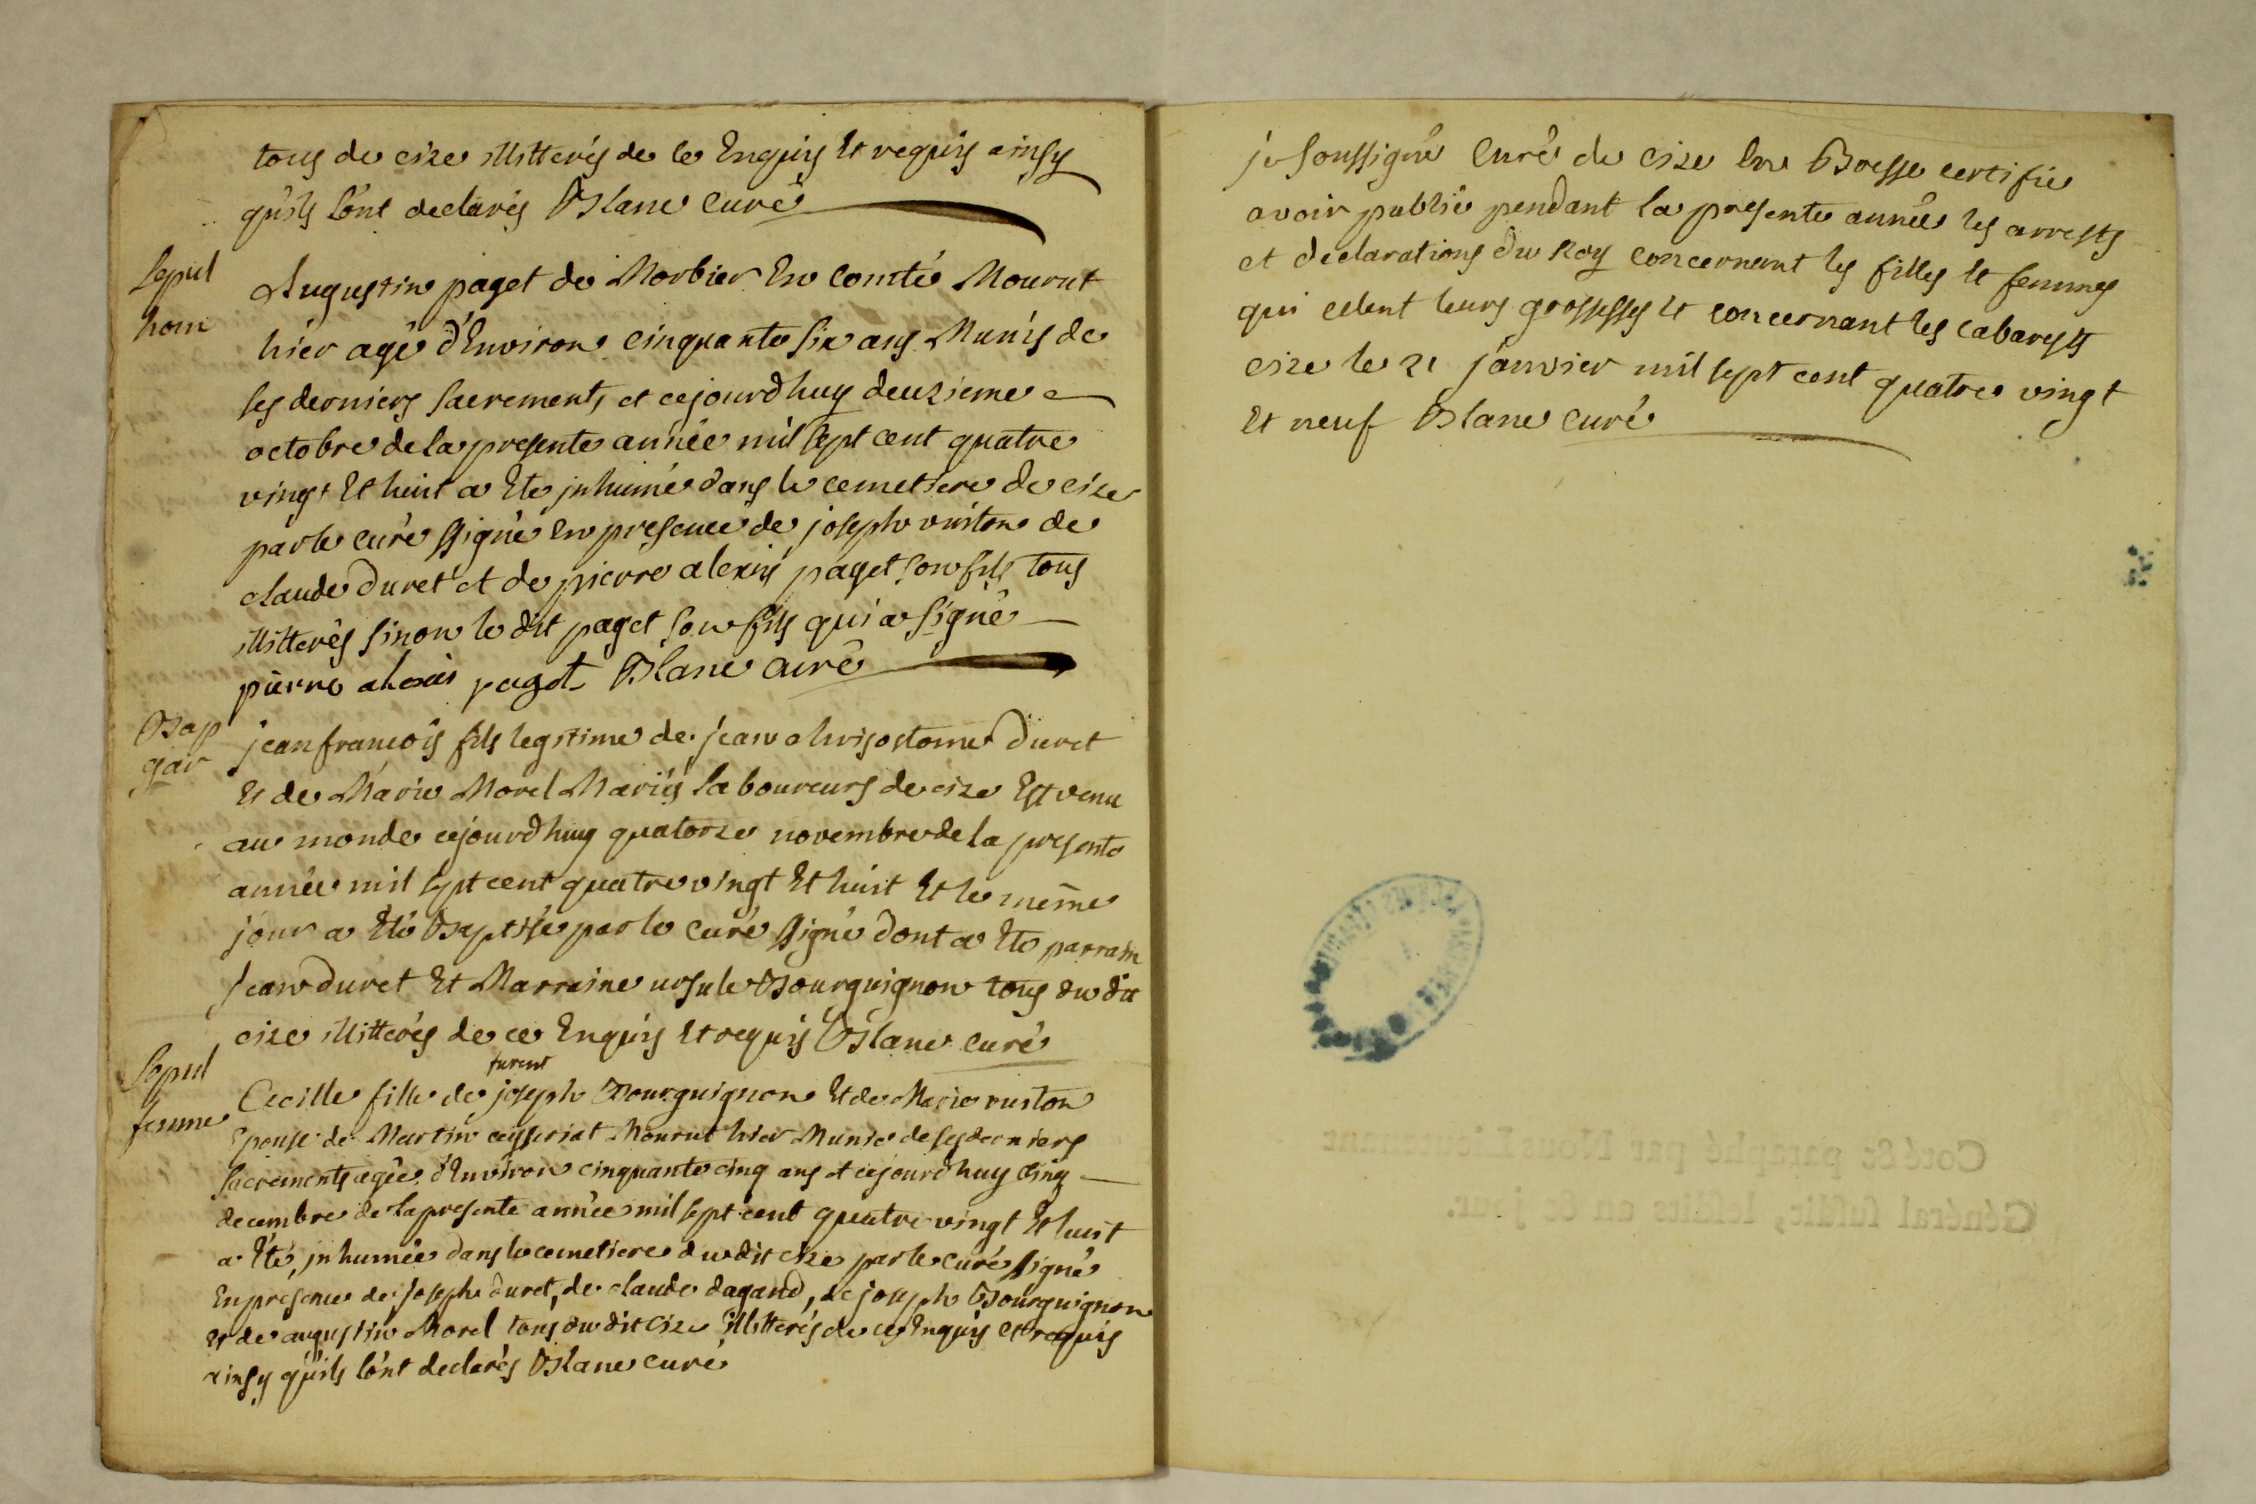 tous de cize illitterés de ce Enquis Et requis ainsy
qu'ils l'ont declarés Blanc curé
Sepul
hom
Augustin paget de Morbier En comté Mourut
hier agé d'Environ cinquante six ans Munis de
ses derniers sacrements et cejourdhuy deuzieme
octobre de la presente année mil sept cent quatre
vingt Et huit a Ete jnhumé dans le cemetiere de cize
par le curé ssigné en presence de joseph vuiton de
claude duret et de pierre alexis paget son fils tous
illitterés sinon le dit paget son fils qui a signé
pierre alexis paget Blanc curé
Bap
gar
jean francois fils legitime de jean chrisostome duret
Et de Marie Morel Mariés laboureurs de cize Est venu
au monde cejourdhuy quatorze novembre de la presente
année mil sept cent quatre vingt Et huit Et le même
jour a Eté Baptisé par le curé ssigné dont a Ete parrain
jean duret Et Marraine ursule Bourguignon tous du dit
cize illitterés de ce Enquis Et requis Blanc curé
Sepul
femme
furent
Cecille fille de joseph Bourguignon Et de Marie vuiton
Epouse de Martin ceysseriat Mourut hier Munie de ses derniers
sacrements agée d'Environ cinquante cinq ans et cejourdhuy cinq
decembre de la presente année mil sept cent quatre vingt Et huit
a Eté, jnhumée dans le cemetiere du dit cize par le curé ssigné
En presence de joseph duret, de claude dagand, de joseph Bourguignon
Et de augustin Morel tous du dit cize illitterés de ce Enquis et requis
ainsy qu'ils l'ont declarés Blanc curé
je soussigné Curé de cize En Bresse certifie
avoir publié pendant la presente année les arrests
et declarations du Roy concernent les filles et femmes
qui celent leurs grossesses et concernant les cabarests
cize le 21 janvier mil sept cent quatre vingt
Et neuf Blanc curé
Coté & paraphé par Nous
Général susdit, lesdits an & jour.